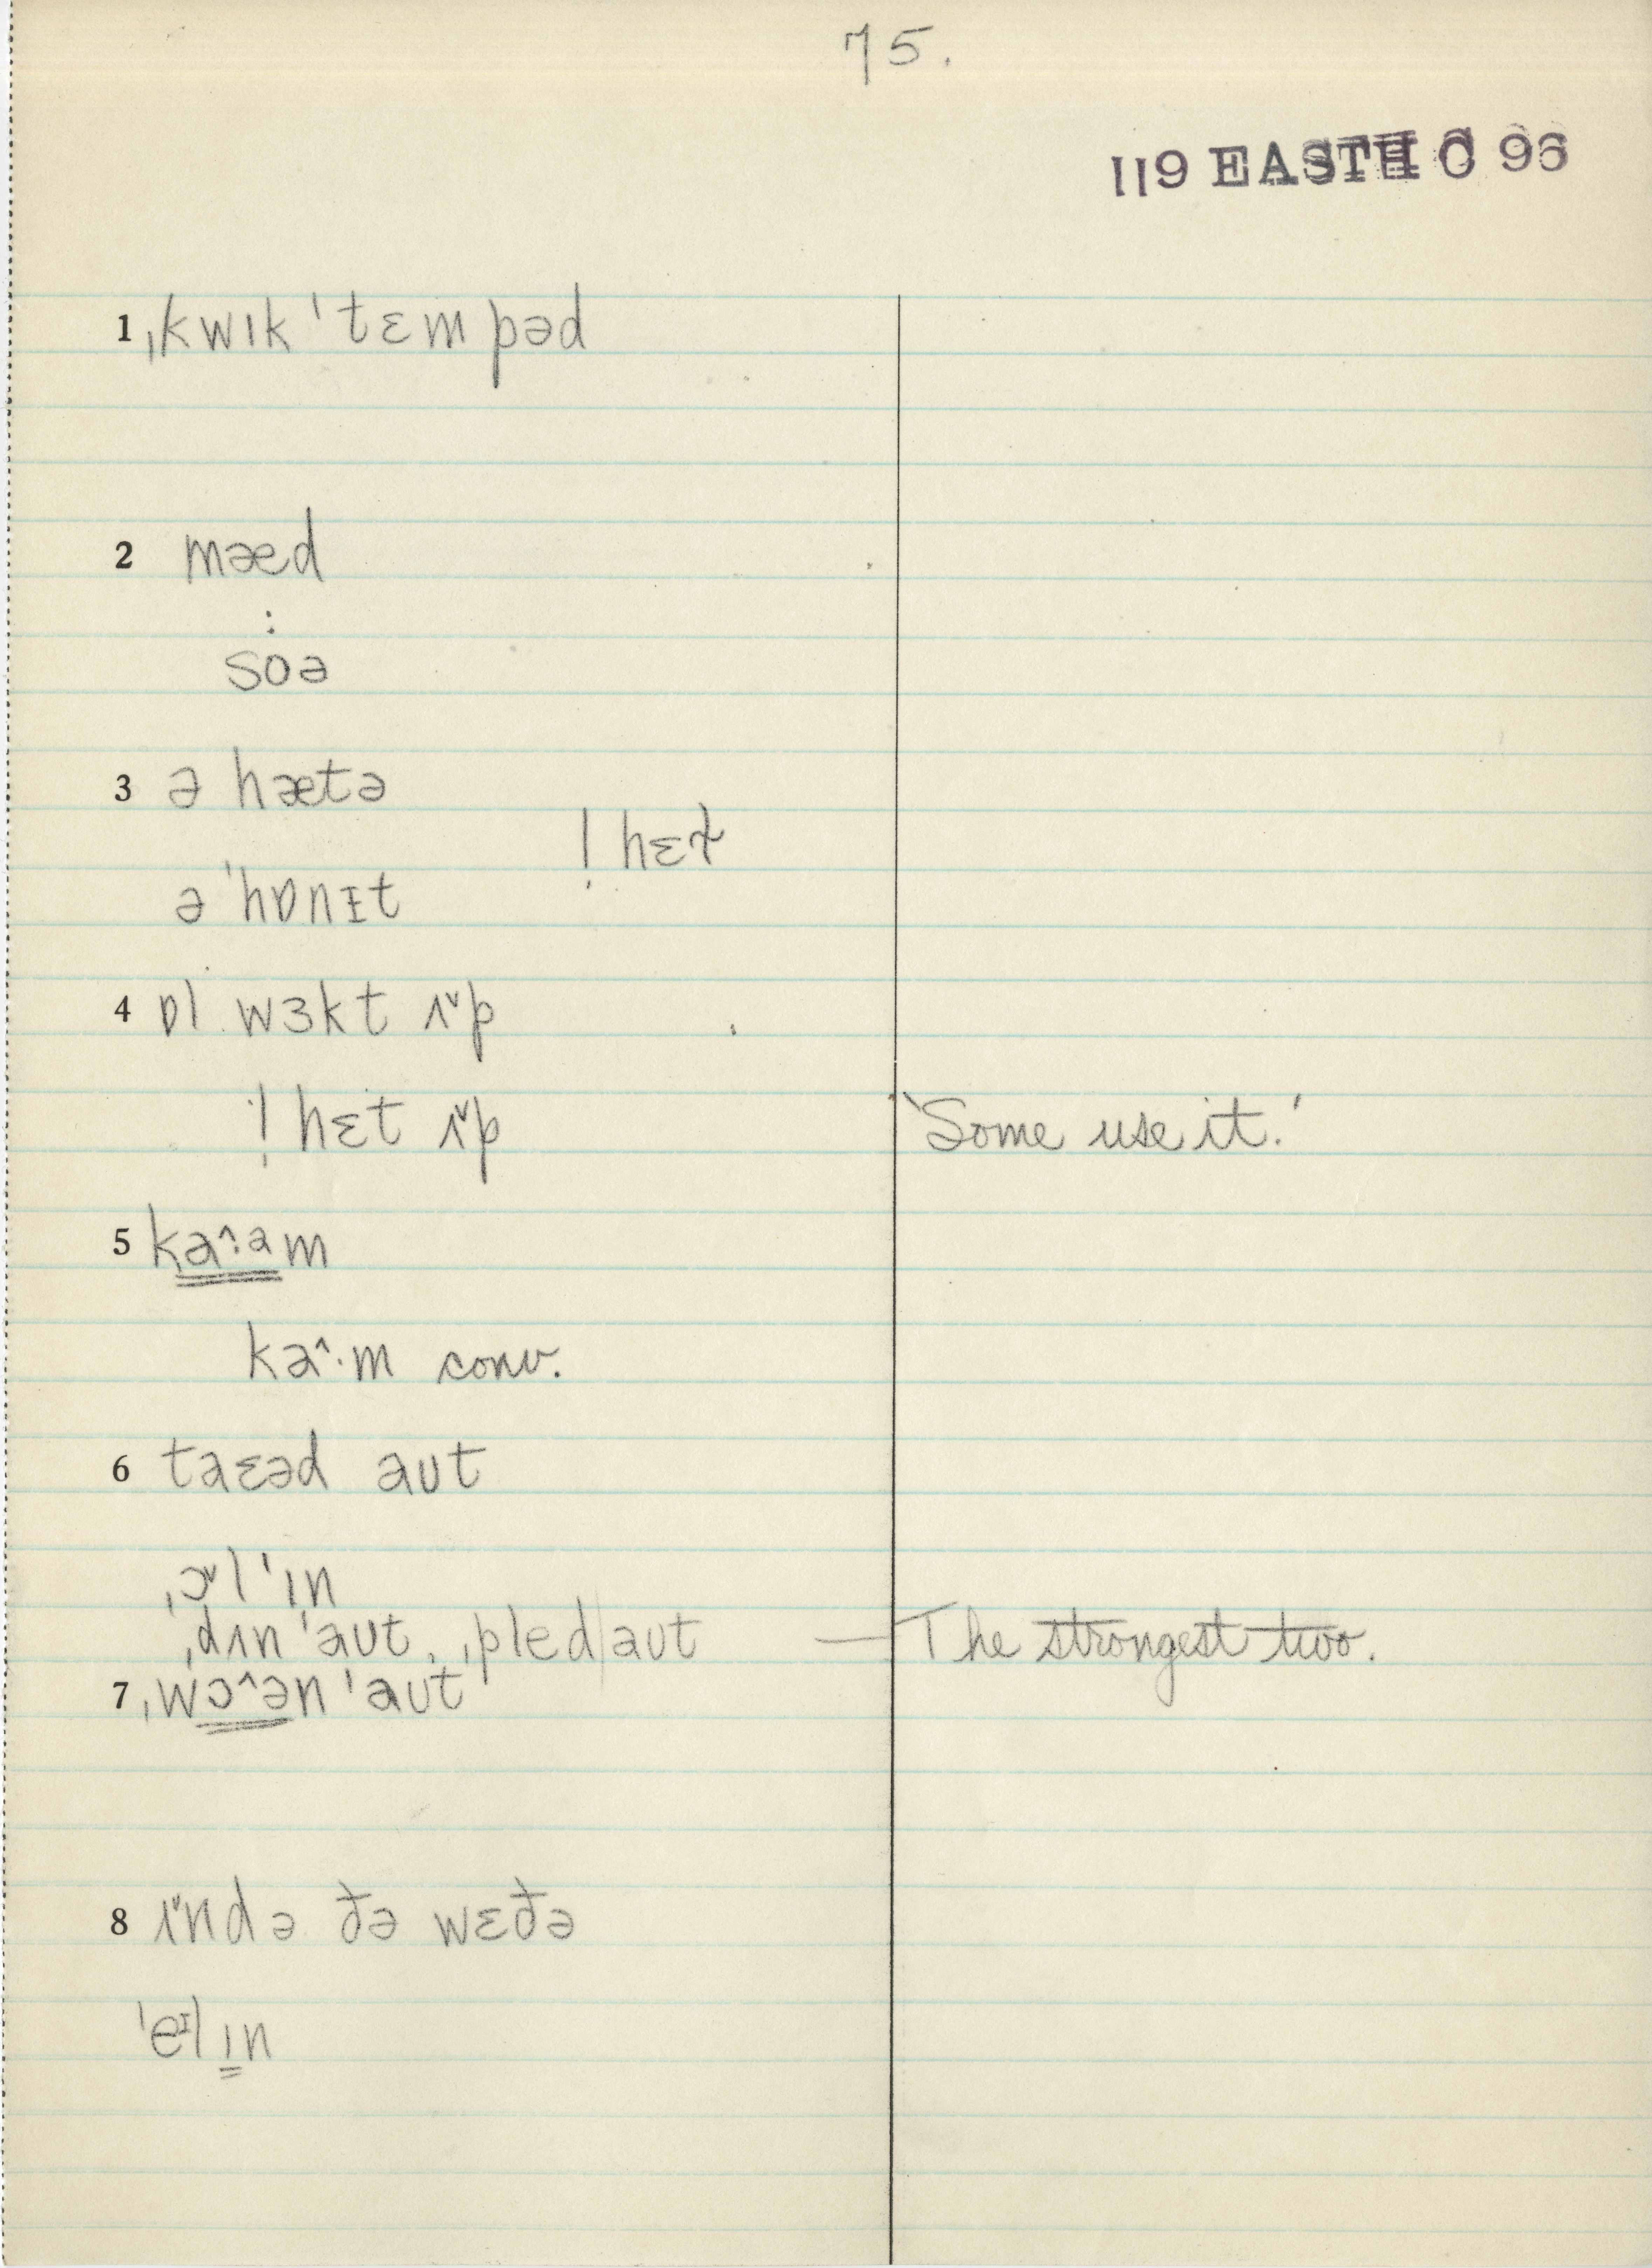 75.
119 EASTH C 96
1 ˌkwɪk ˈtɛmpəd
2 mæd
:
soə
3 ə hætə
! hɛt
ə ˈhɒnɪt
4 ɒl wɜkt ʌ˅p
! hɛt ʌ˅p 'Some use it.'
5 ka^:am
ka^·m conv.
6 taɛəd aʊt
ˌɔ˅l ˈɪn
ˌdʌn ˈaʊt, ˌpled|aʊt — The strongest two.
7 ˌwɔ^ən ˈaʊt
8 ʌ˅ndə ðə wɛðə
ˈeɪlɪn